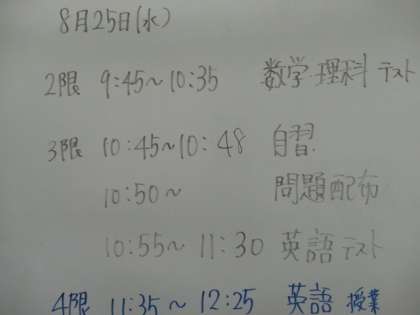 8月25日(水)
2限 9:45～10:35 数学・理科 テスト
3限 10:45～10:48 自習
10:50～ 問題配布
10:55～ 11:30 英語テスト
4限 11:35 ～ 12:25 英語 授業